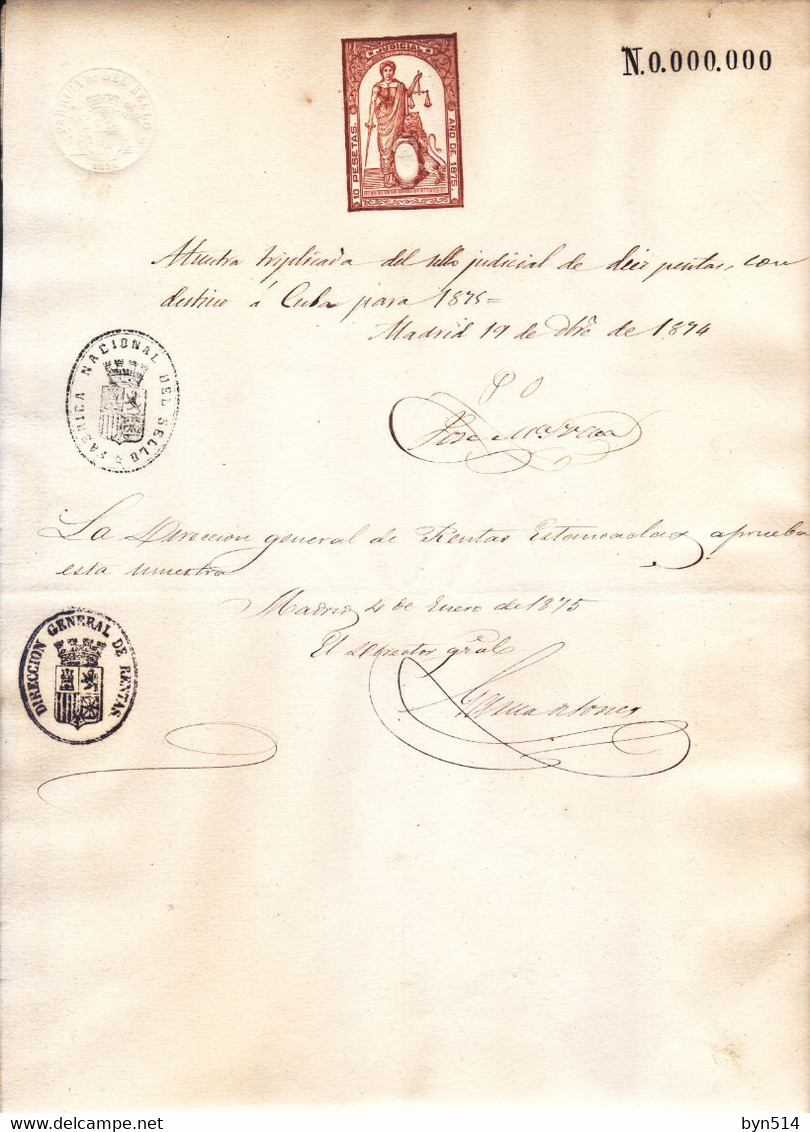 N.0.000.000
JUDICIAL
10 PESETAS. AÑO DE 1875.
FABRICA NAL DEL SELLO
Muestra triplicada del sello judicial de diez pesetas, con
destino á Cuba para 1875=
Madrid 19 de Dbre de 1874
P O
José
FABRICA NACIONAL DEL SELLO
La Direccion general de Rentas Estancadas aprueba
esta muestra
Madrid 4 de Enero de 1875
El Director gral
DIRECCION GENERAL DE RENTAS
delcampe.net
byn514